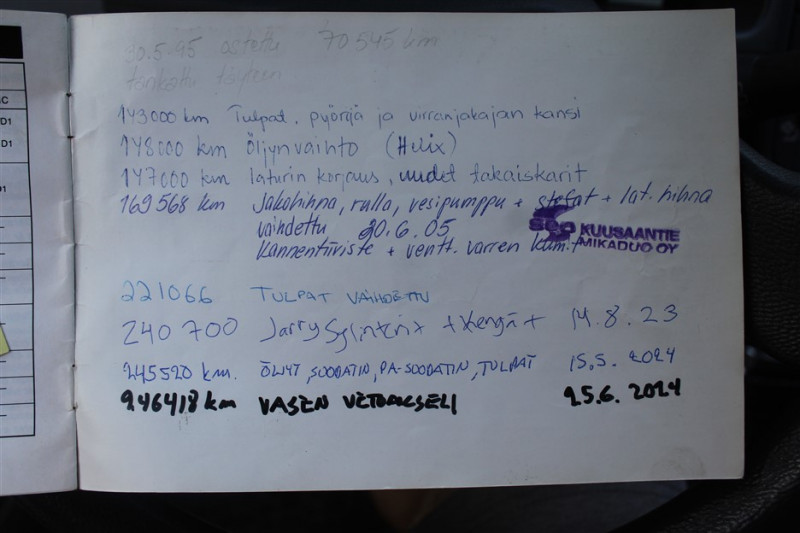 30.5.95 ostettu 70545 km
tankattu täyteen
143000 km Tulpat, pyörijä ja virranjakajan kansi
148000 km Öljynvaihto (Helix)
147000 km laturin korjaus, uudet takaiskarit
169568 km Jakohihna, rulla, vesipumppu + stefat + lat. hihna
vaihdettu 30.6.05
Kannentiiviste + ventt. varren kum.t
SEO KUUSAANTIE
MIKADUO OY
221066 TULPAT VAIHDETTU
240 700 Jarrysylinterit + Kengät 14.8.23
245520 km. ÖLJYT, SUODATIN, PA-SUODATIN, TULPAT 15.5. 2024
246418 km VASEN VETOAKSELI 25.6. 2024
C
D1
D1
D1